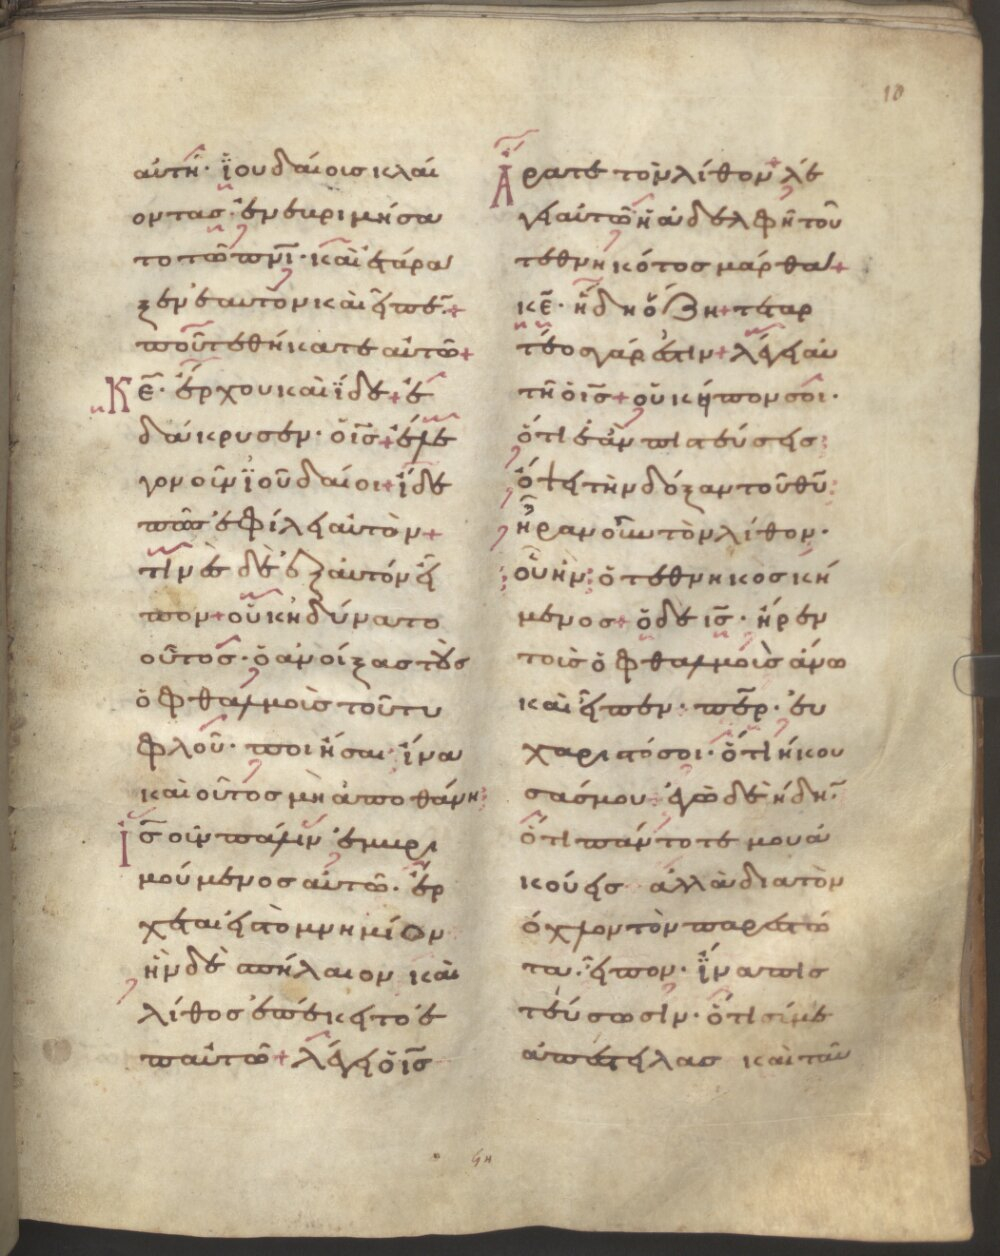 10
αὐτῆ· ἰουδαίοισ κλαί
οντασ· ἐνεβριμήσα
το τῶ πνῑ· καὶ ἐτάρα
ξεν ἑαυτὸν καὶ εἶπεν+
ποῦ τεθήκατε αὐτῶ+
Κε̄· ἔρχου καὶ ἴδε+ ἐ
δάκρυσεν· ὁ ις̄+ ἔλε
γον οὖν ἰουδαίοι+ ἴδε
πῶσ ἐφίλει αὐτὸν+
τινὲσ δὲ ἐξ αὐτῶν εἶ
πον+ οὐκ ηδύνατο
οὗτοσ· ὁ ἀνοίξασ τοὺσ
ὀφθαλμοὶσ τοῦ τυ
φλοῦ· ποιῆσαι ἵνα
καὶ οὗτοσ μὴ ἀποθάνη
Ις̄ οὖν πάλιν ἐμβρι
μούμενοσ αὐτῶ· ἔρ
χεται εἰσ τὸ μνημίον
ἦν δὲ σπήλαιον καὶ
λίθοσ ἐπέκειτο ἐ
παὐτῶ+ λέγει ὁ ις̄
Ἄρατε τὸν λίθον+ λέ
γει αὐτῶ ἡ ἀδελφὴ τοῦ
τεθνηκότοσ μάρθα+
κε̄· ἤδη ὄζη+ τεταρ
τέοσ γάρ ἐστιν+ λέγει αὐ
τῆ ὁ ις̄+ οὐκ εἶπον σοι·
ὅτι ἐὰν πιστεύσεισ
ὄψει τὴν δόξαν τοῦ θῡ
ἦραν οὖν τὸν λίθον·
οὗ ἦν ὁ τεθνηκοσ κεί
μενοσ+ ὁ δε ις̄· ἦρεν
τοὶσ ὀφθαλμοὶσ ἄνω
καὶ εἶπεν· περ̄· εὐ
χαριστό σοι· ὅτι ἤκου
σάσ μου ἐγὼ δὲ ἤδην̄·
ὅτι πάντοτε μου ἀ
κούεισ ἀλλὰ διὰ τὸν
ὄχλον τὸν παρεστῶ
τα· εἶπον· ἵνα πισ
τεύσωσιν· ὅτι σύ με
ἀπέστειλασ καὶ ταῦ